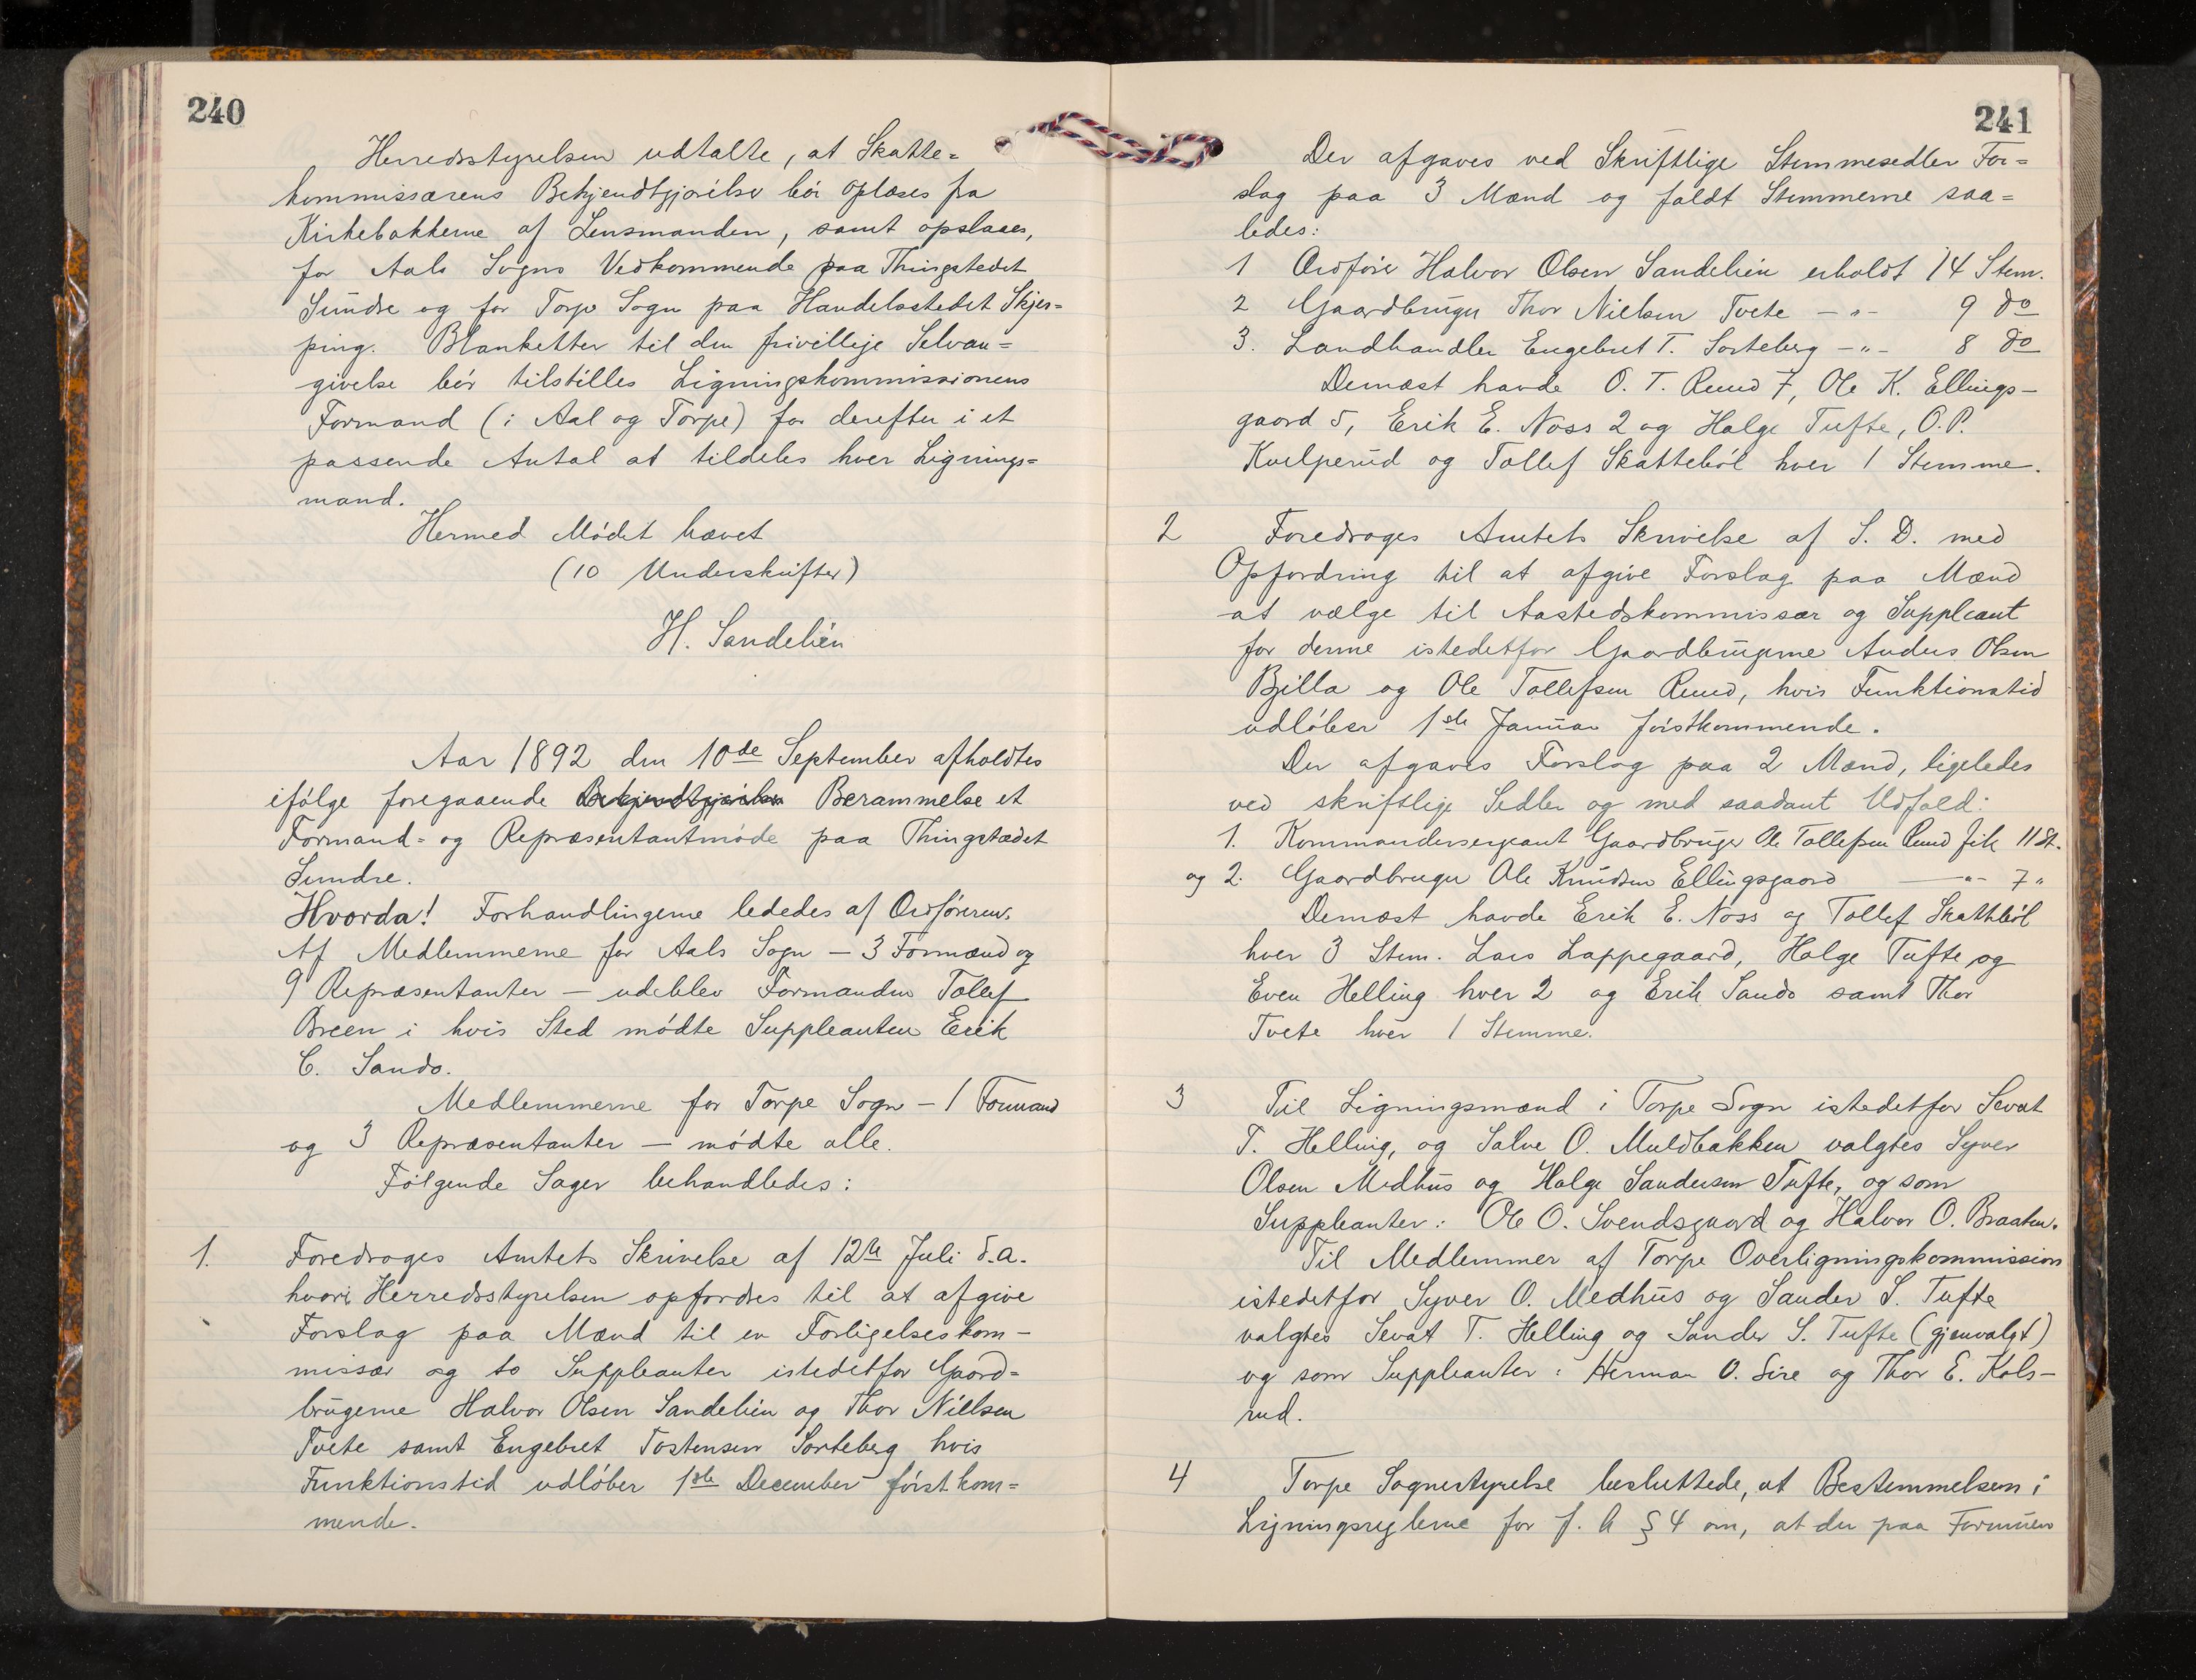 240
Herredsstyrelsen udtalte, at Skatte=
kommissærens Bekjendtgjørelse bør oplæses fra
Kirkebakkerne af Lensmanden, samt opslaaes,
for Aals Sogns Vedkommende paa Thingstedet
Sundre og for Torpe Sogn paa Handelsstedet Skjer=
ping. Blanketter til den frivillige Selvan=
givelse bør tilstilles Ligningskommissionens
Formand (i Aal og Torpe) for derefter i et
passende Antal at tildeles hver Lignings=
mand.
Hermed Mødet hævet
(10 Underskrifter)
H. Sandelién
Aar 1892 den 10de September afholdtes
ifølge foregaaende Bekjendtgjørelse Berammelse et
Formand= og Repræsentantmøde paa Thingstedet
Sundre.
Hvorda! Forhandlingerne lededes af Ordføreren.
Af Medlemmerne for Aals Sogn — 3 Formænd og
9 Repræsentanter — udeblev Formanden Tollef
Breen i hvis Sted mødte Suppleanten Erik
C. Sando.
Medlemmerne for Torpe Sogn — 1 Formand
og 3 Repræsentanter — mødte alle.
Følgende Sager behandledes:
1. Foredroges Amtets Skrivelse af 12te Juli d.a.
hvori Herredsstyrelsen opfordres til at afgive
Forslag paa Mænd til en Forligelseskom-
missær og to Suppleanter istedetfor Gaard=
brugerne Halvor Olsen Sandelien og Thor Nielsen
Tvete samt Engebret Tostensen Sorteberg hvis
Funktionstid udløber 1ste December førstkom=
mende.
241
Der afgaves ved Skriftlige Stemmesedler For=
slag paa 3 Mænd og faldt Stemmerne saa=
ledes:
1 Ordfører Halvor Olsen Sandelien erholdt 14 Stem.
2 Gaardbruger Thor Nielsen Tvete — " — 9 do
3. Landhandler Engebret T. Sorteberg — " — 8 do
Dernæst havde O. T. Ruud 7, Ole K. Ellings-
gaard 5, Erik E. Noss 2 og Halge Tufte, O. P.
Kvelperud og Tollef Skattebøl hver 1 Stemme.
2 Foredroges Amtets Skrivelse af S. D. med
Opfordring til at afgive Forslag paa Mænd
at vælge til Aastedskommissær og Suppleant
for denne istedetfor Gaardbrugerne Anders Olsen
Bjella og Ole Tollefsen Ruud, hvis Funktionstid
udløber 1ste Januar førstkommende.
Der afgaves Forslag paa 2 Mænd, ligeledes
ved skriftlige Sedler og med saadant Udfald:
1. Kommandersergeant Gaardbruger Ole Tollefsen Ruud fik 11 St.
og 2. Gaardbruger Ole Knudsen Ellingsgaard — " — 7 "
Dernæst havde Erik E. Noss og Tollef Skattebøl
hver 3 Stem. Lars Lappegaard, Halge Tufte og
Even Helling hver 2 og Erik Sando samt Thor
Tvete hver 1 Stemme.
3 Til Ligningsmænd i Torpe Sogn istedetfor Sevat
T. Helling, og Salve O. Muldbakken valgtes Syver
Olsen Medhus og Halge Sandersen Tufte, og som
Suppleanter: Ole O. Svendsgaard og Halvor O. Braaten.
Til Medlemmer af Torpe Overligningskommission
istedetfor Syver O. Medhus og Sander S. Tufte
valgtes Sevat T. Helling og Sander S. Tufte (gjenvalgt)
og som Suppleanter: Herman O. Sire og Thor E. Kols-
rud.
4 Torpe Sognestyrelse besluttede, at Bestemmelsen i
Ligningsreglerne for f. A § 4 om, at der paa Formuen